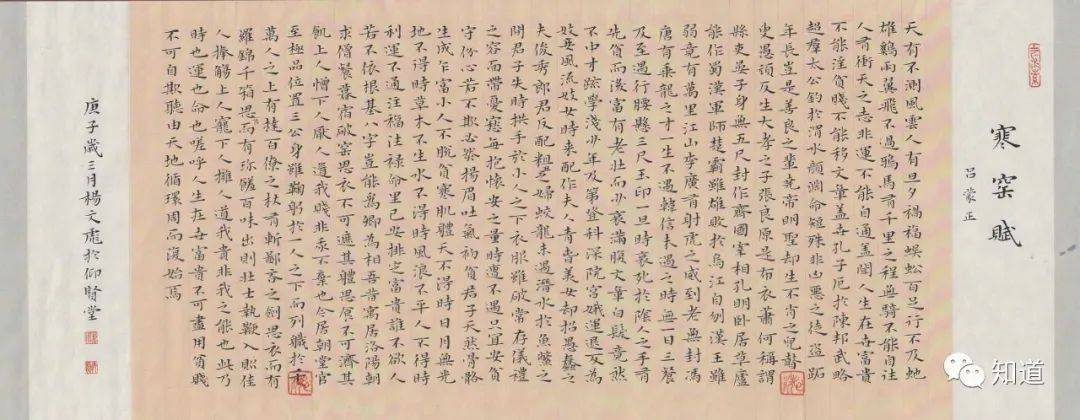 寒窑賦
吕蒙正
天有不測風雲人有旦夕禍福蜈蚣百足行不及虵
雄鷄兩翼飛不過鴉馬有千里之程無騎不能自往
人有衝天之志非運不能自通蓋聞人生在世富貴
不能淫貧賤不能移文章蓋世孔子厄於陳邦武略
超羣太公釣於渭水顏淵命短殊非凶惡之徒盜跖
年長豈是善良之輩堯帝明聖却生不肖之兒瞽
叟愚頑反生大孝之子張良原是布衣蕭何稱謂
縣吏晏子身無五尺封作齊國宰相孔明卧居草廬
能作蜀漢軍師楚霸雖雄敗於烏江自刎漢王雖
弱竟有萬里江山李廣有射虎之威到老無封馮
唐有乘龍之才一生不遇韓信未遇之時無一日三餐
及至遇行腰懸三尺玉印一旦時衰死於陰人之手有
先貧而後富有老壯而少衰滿腹文章白髮竟然
不中才疏學淺少年及第登科深院宮娥運退反為
妓妾風流妓女時來配作夫人青春美女却招愚蠢之
夫俊秀郎君反配粗醜之婦蛟龍未遇潛水於魚鱉之
間君子失時拱手於小人之下衣服雖破常存儀禮
之容面帶憂愁每抱懷安之量時遭不遇只宜安貧
守份心若不欺必然揚眉吐氣初貧君子天然骨骼
生成乍富小人不脫貧寒肌體天不得時日月無光
地不得時草木不生水不得時風浪不平人不得時
利運不通注福注禄命里已安排定富貴誰不欲人
若不依根基八字豈能為卿為相吾昔寓居洛陽朝
求僧餐暮宿破窑思衣不可遮其體思食不可濟其
飢上人憎下人厭人道我賤非我不棄也今居朝堂官
至極品位置三公身雖鞠躬於一人之下而列職於千
萬人之上有撻百僚之杖有斬鄙吝之劍思衣而有
羅錦千箱思食而有珍饈百味出則壯士執鞭入則佳
人捧觴上人寵下人擁人道我貴非我之能也此乃
時也運也命也嗟呼人生在世富貴不可盡用貧賤
不可自欺聽由天地循環周而復始焉
庚子歲三月楊文彪於仰賢堂
知道